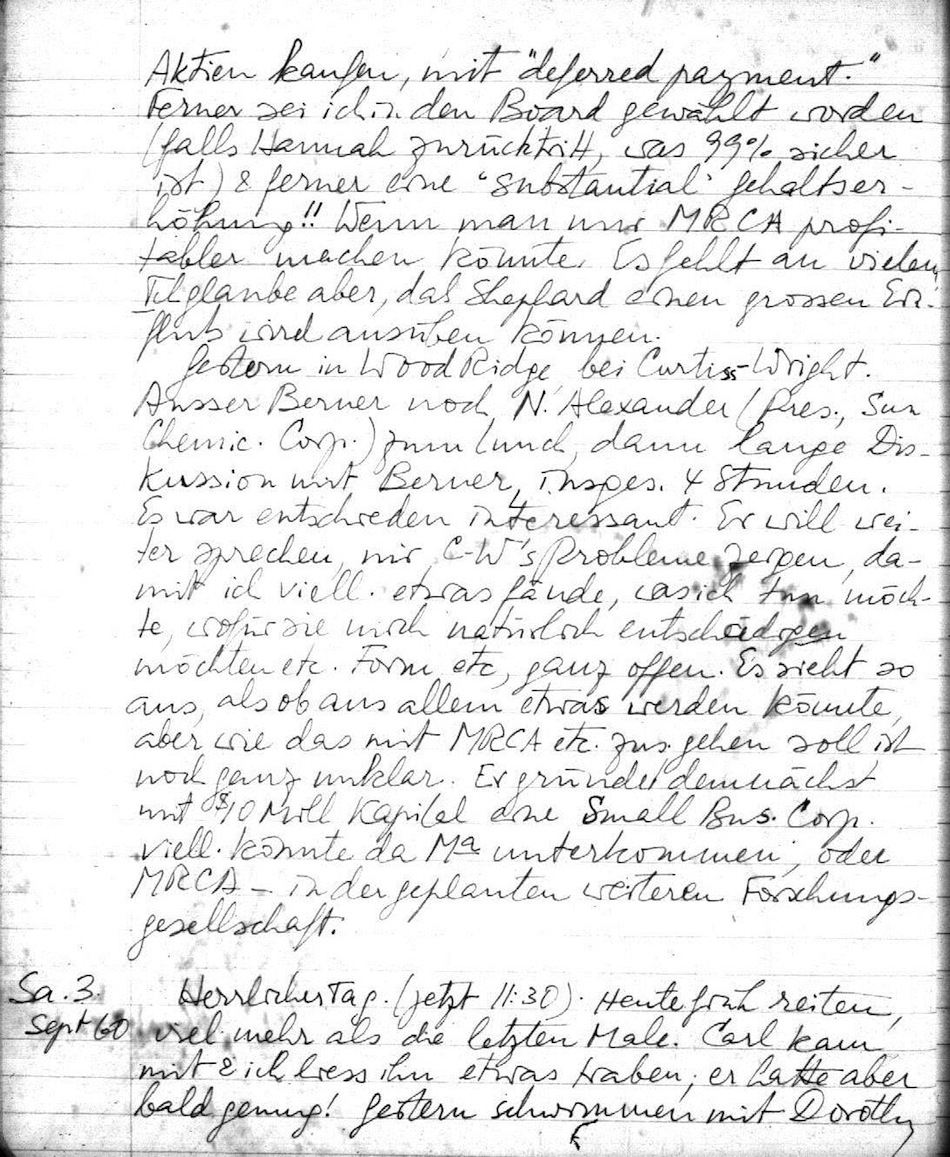 Aktien kaufen, mit "deferred payment."
Ferner sei ich in den Board gewählt worden
(falls Hannah zurücktritt, was 99% sicher
ist) & ferner eine "substantial" Gehaltser-
höhung!! Wenn man nur MRCA profi-
tabler machen könnte. Es fehlt an vielem,
Ich glaube aber, daß Shephard einen grossen Ein-
fluß wird ausüben können.
Gestern in WoodRidge, bei Curtiss-Wright.
Ausser Berner noch N. Alexander (Pres., Sun
Chemic. Corp.) zum Lunch, dann lange Dis-
kussion mit Berner, insges. 4 Stunden.
Es war entschieden interessant. Er will wei-
ter sprechen, mir C-W's Probleme zeigen, da-
mit ich viell. etwas fände, was ich tun möch-
te, wofür sie mich natürlich entschädigen
möchten etc. Form etc, ganz offen. Es sieht so
aus, als ob aus allem etwas werden könnte,
aber wie das mit MRCA etc. zus. gehen soll ist
noch ganz unklar. Er gründet demnächst
mit $10 Mill Kapital eine Small Bus. Corp.
viell. könnte da Ma unterkommen; oder
MRCA – in der geplanten weiteren Forschungs-
gesellschaft.
Sa. 3. Herrlicher Tag. (jetzt 11:30). Heute früh reiten,
Sept 60 viel mehr als die letzten Male. Carl kam
mit & ich liess ihn etwas traben; er hatte aber
bald genug! Gestern schwimmen mit Dorothy